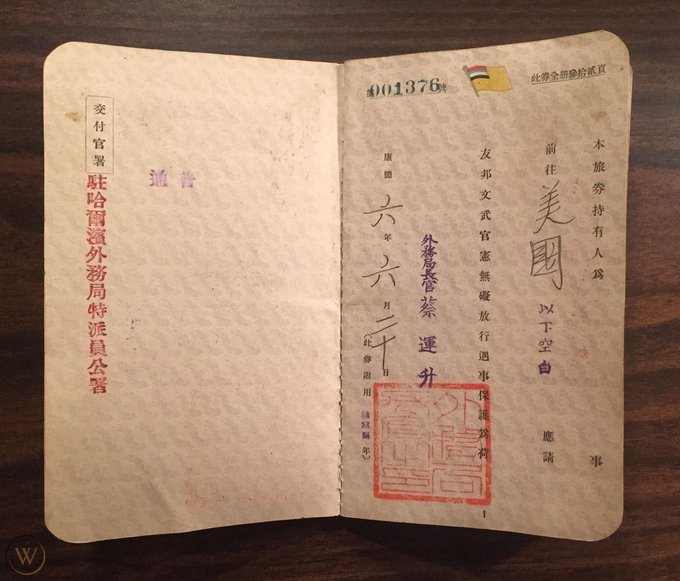 此券全册參拾貳頁
001376
本旅券持有人爲 事
前往美國 以下空白 應請
友邦文武官憲無礙放行遇事保護爲荷
外務局長官蔡運升
康德六年六月二十日
(此券限用 年)
1
交付官署
駐哈爾濱外務局特派員公署
W